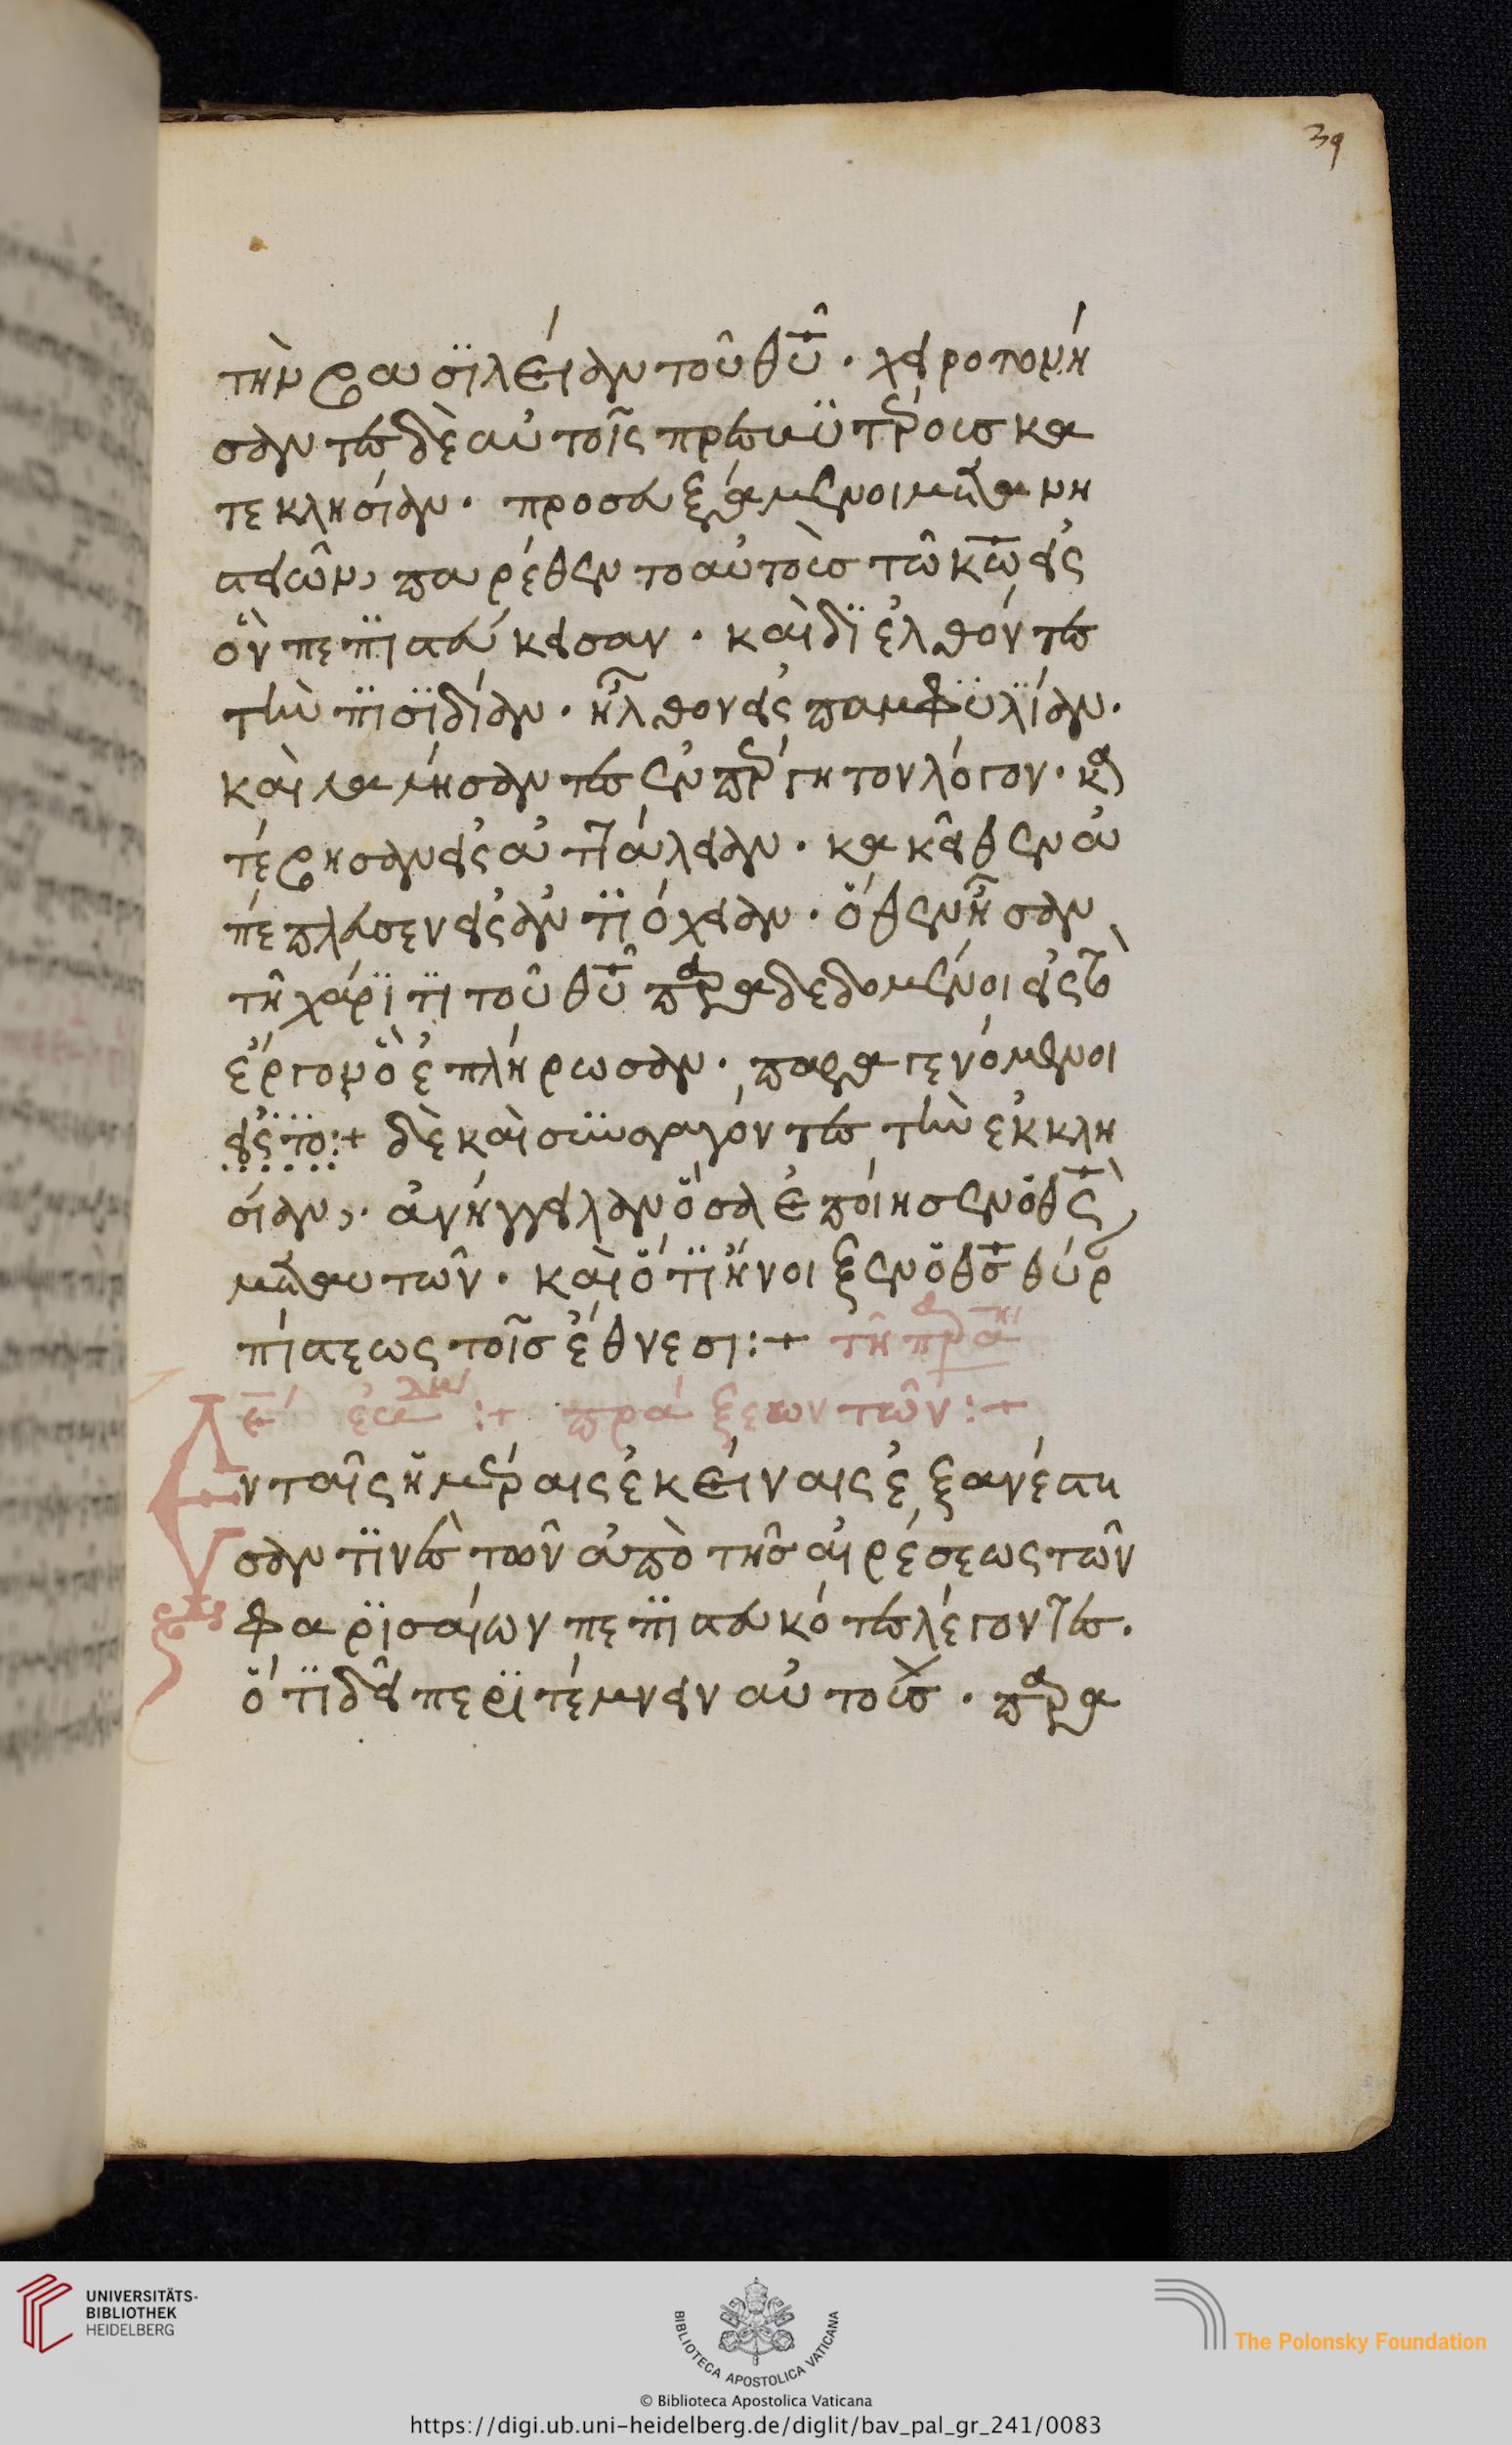 39
τὴν βασϊλείαν τοῦ θῡ̂· χειροτονή
σαντες δὲ αὐτοῖς πρεσβϋτέροις κα
τεκλησίαν· προσευξάμενοι μετὰ νη
στειῶν, παρέθεντο αὐτοὺς τῶ κω̄ εἰς
ὃν πεπϊστεύκεισαν· καὶ δϊελθόντες
τὴν πϊσϊδίαν· ἦλθον εἰς παμφϋλϊίαν·
καὶ λαλήσαντες ἐν πέργη τον λόγον· κα
τέβησαν εἰς ἀττάλειαν· κακεῖθεν ἀ
πέπλευσεν εἰς ἀντϊόχειαν· ὅθεν ἦσαν
τῆ χάρϊτϊ τοῦ θῡ̂ παραδεδομένοι εἰς τὸ
ἔργον ὃ ἐπλήρωσαν· παραγενόμενοι
εἰς τὸ:+ δὲ καὶ συναγαγόντες τὴν ἐκκλη
σίαν,· ἀνήγγειλαν ὅσα ἐποίησεν ὁ θς̄
μετ αυτῶν· καὶ ὅτϊ ἤνοιξεν ὁ θς̄ θύρ
πίστεως τοῖς ἔθνεσι:+ τῆ πρα
:+ πράξεων τῶν:+
Εν ταῖς ἡμέραις ἐκείναις ἐξανέστη
σαν τϊνὲς τῶν ἀπὸ τῆς αἱρέσεως τῶν
φαρϊσαίων πεπϊστευκότες λέγοντες·
ὅτϊ δεῖ περϊτέμνειν αὐτοὺς· παρα
UNIVERSITÄTS-
BIBLIOTHEK
HEIDELBERG
BIBLIOTECA APOSTOLICA VATICANA
The Polonsky Foundation
© Biblioteca Apostolica Vaticana
https://digi.ub.uni-heidelberg.de/diglit/bav_pal_gr_241/0083